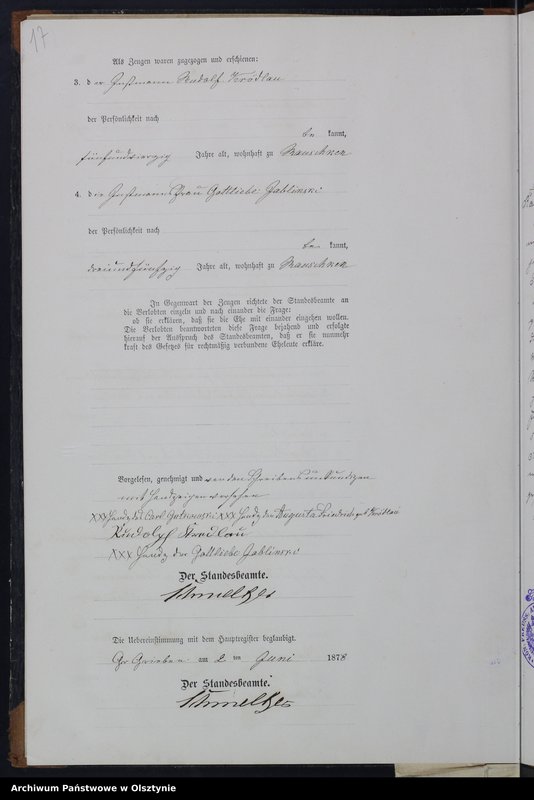 17
Als Zeugen waren zugezogen und erschienen:
3. der Instmann Rudolf Krödlau
der Persönlichkeit nach
be kannt,
fünfundvierzig Jahre alt, wohnhaft zu Rauschken
4. die Instmannsfrau Gottliebe Jablinski
der Persönlichkeit nach
be kannt,
dreiundfünfzig Jahre alt, wohnhaft zu Rauschken
In Gegenwart der Zeugen richtete der Standesbeamte an
die Verlobten einzeln und nach einander die Frage:
ob sie erklären, daß sie die Ehe mit einander eingehen wollen.
Die Verlobten beantworteten diese Frage bejahend und erfolgte
hierauf der Ausspruch des Standesbeamten, daß er sie nunmehr
kraft des Gesetzes für rechtmäßig verbundene Eheleute erkläre.
Vorgelesen, genehmigt und von den Schreibens unkundigen
mit Handzeichen versehen
XXX Handz. des Carl XXX Handz. der Augusta geb. Krödlau
Rudolph
XXX Handz. der Gottliebe Jablinski
Der Standesbeamte.
Die Uebereinstimmung mit dem Hauptregister beglaubigt.
Gr Grieben am 2 ten Juni 1878
Der Standesbeamte.
Archiwum Państwowe w Olsztynie